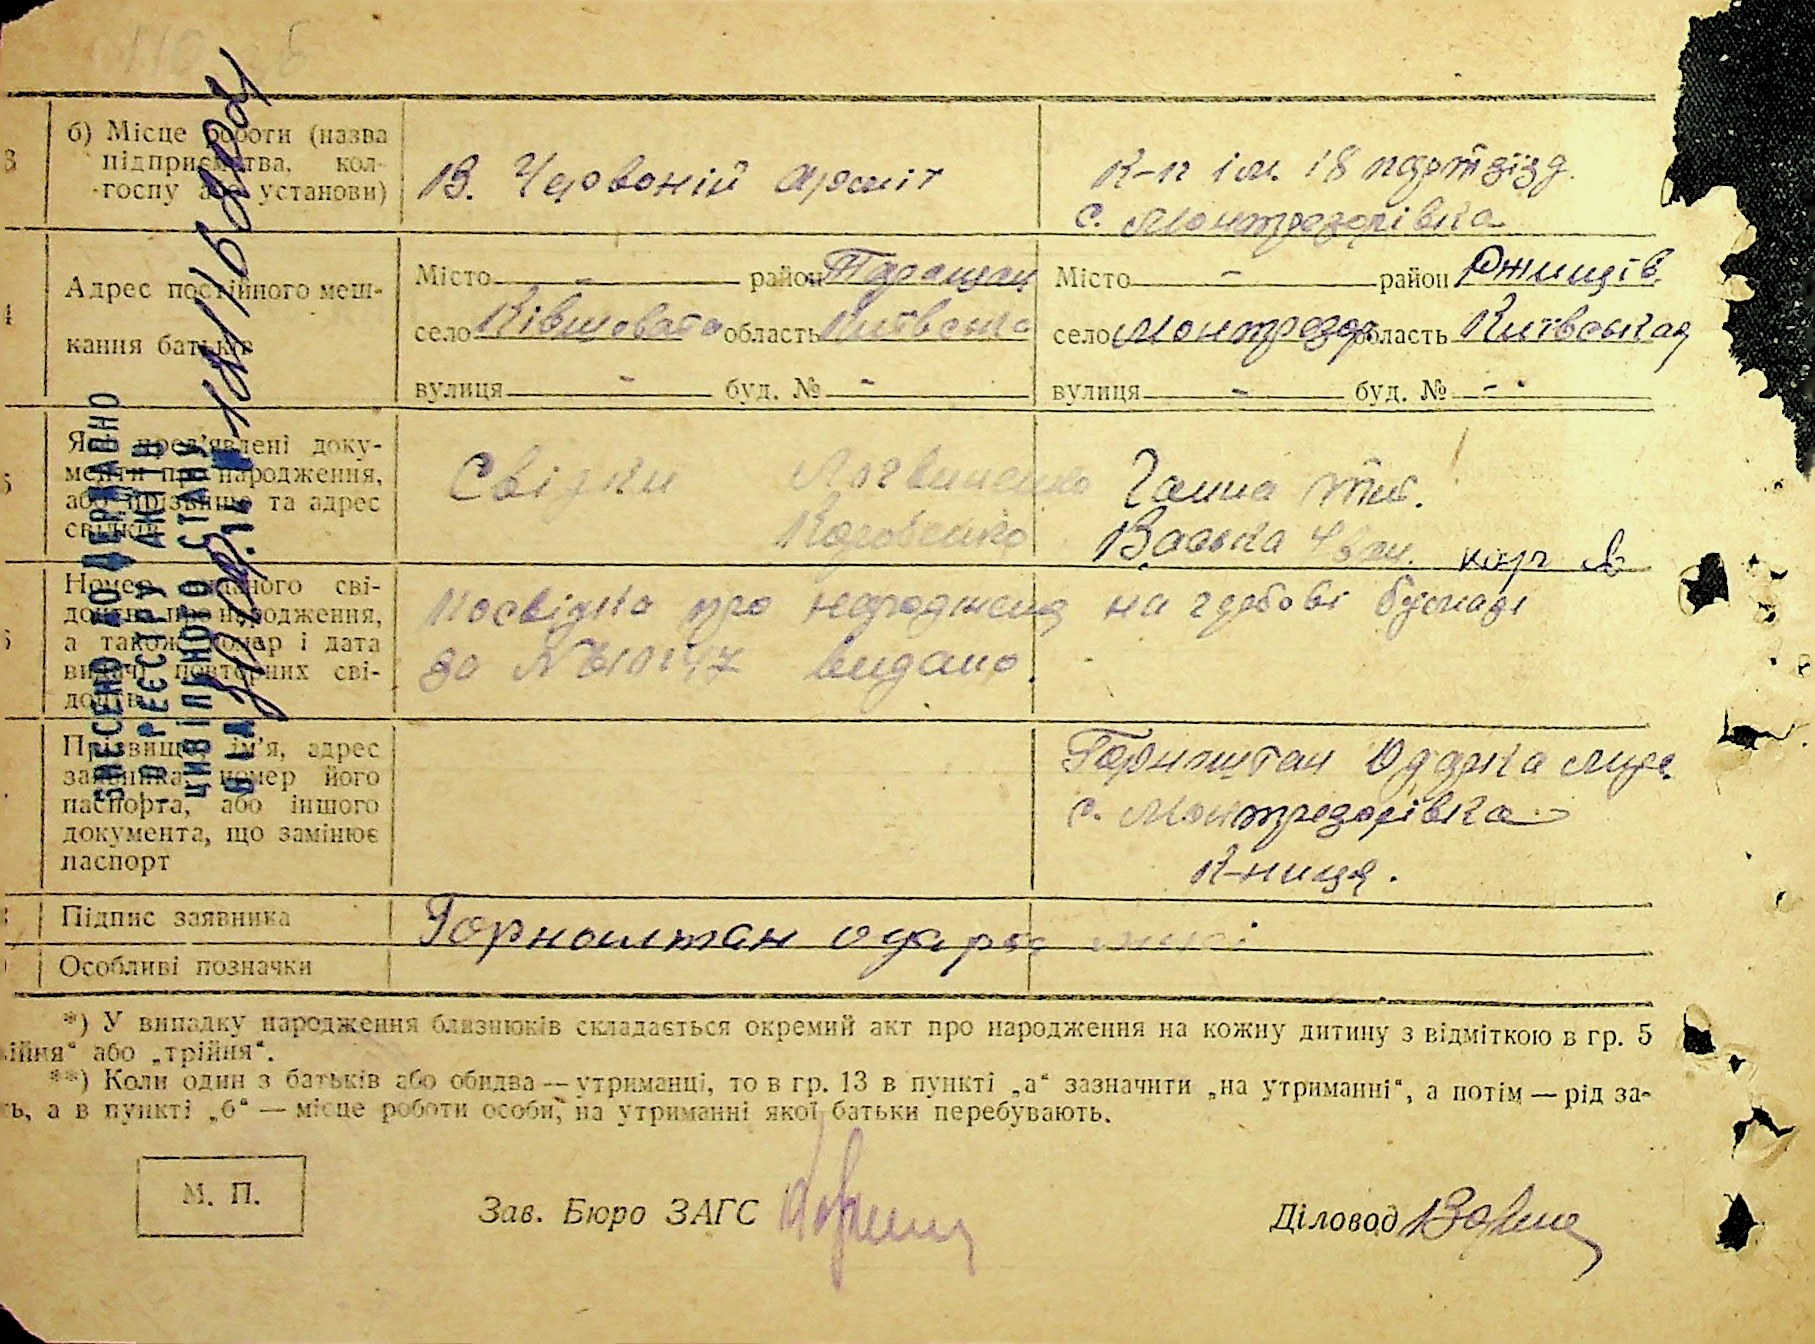 б) Місце роботи (назва
підприємства, кол-
госпу або установи)
В. Червоній Армії
К-п ім. 18 партзїзд.
с. Монтрезорівка
Адрес постійного меш-
кання батьків
Місто - район Таращан
село Ківшовата область Київська
вулиця - буд. № -
Місто - район Ржищів
село Монтрезор область Київськая
вулиця - буд. № -
Які пред'явлені доку-
менти про народження,
або прізвище та адрес
свідків
Свідки Логвиненко Ганна Тит.
Коровенко Васька
Номер виданого сві-
доцтва про народження,
а також номер і дата
видачі повторних сві-
доцтв
Посвідка про народженя на гербові бумазі
за № видано.
Прізвище, ім'я, адрес
заявника, номер його
паспорта, або іншого
документа, що замінює
паспорт
Горнштан Одарка
с. Монтрезорівка
К-ниця.
Підпис заявника
Особливі позначки
ВНЕСЕНО ДО ДЕРЖАВНО
О РЕЄСТРУ АКТІВ
ЦИВІЛЬНОГО СТАНУ
*) У випадку народження близнюків складається окремий акт про народження на кожну дитину з відміткою в гр. 5
ійня" або „трійня".
**) Коли один з батьків або обидва — утриманці, то в гр. 13 в пункті „а" зазначити „на утриманні", а потім — рід за-
ть, а в пункті „б" — місце роботи особи, на утриманні якої батьки перебувають.
М. П.
Зав. Бюро ЗАГС
Діловод